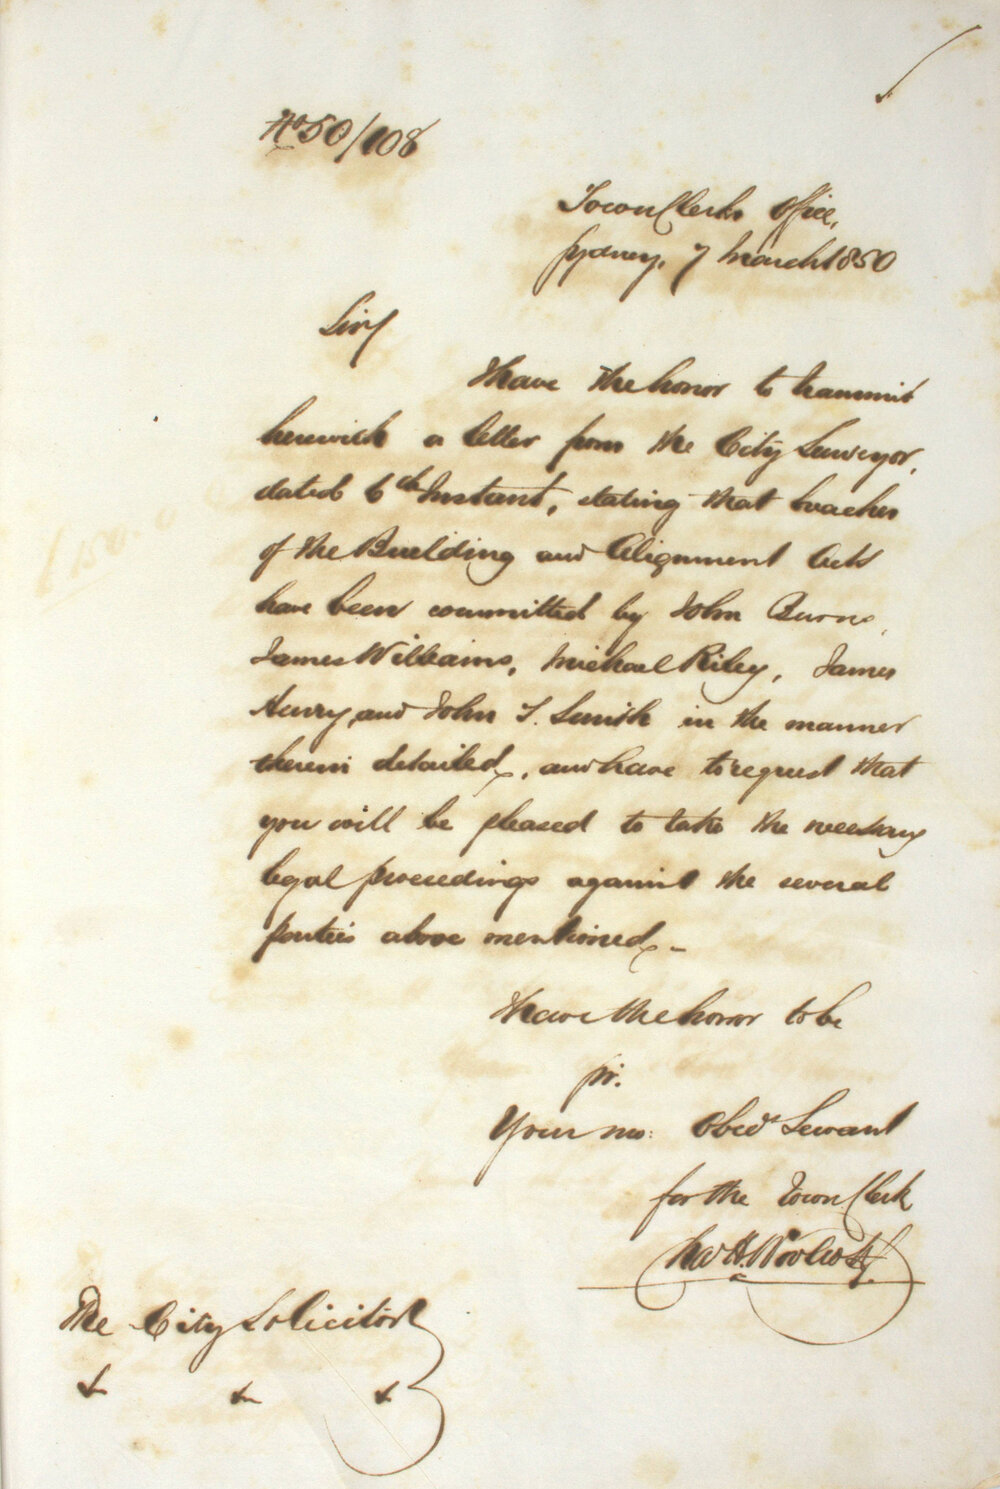 No 50/108
Town Clerks Office,
Sydney, 7 March 1850
Sir
I have the honor to transmit
herewith a letter from the City Surveyor,
dated 6th Instant, stating that breaches
of the Building and Alignment Acts
have been committed by John Burns,
James Williams, Michael Riley, James
Henry and John T. Smith in the manner
therein detailed, and have to request that
you will be pleased to take the necessary
legal proceedings against the several
parties above mentioned -
I have the honor to be
Sir.
Your mo: Obedt Servant
for the Town Clerk
Chas H. Woolcott
The City Solicitor
&c &c &c